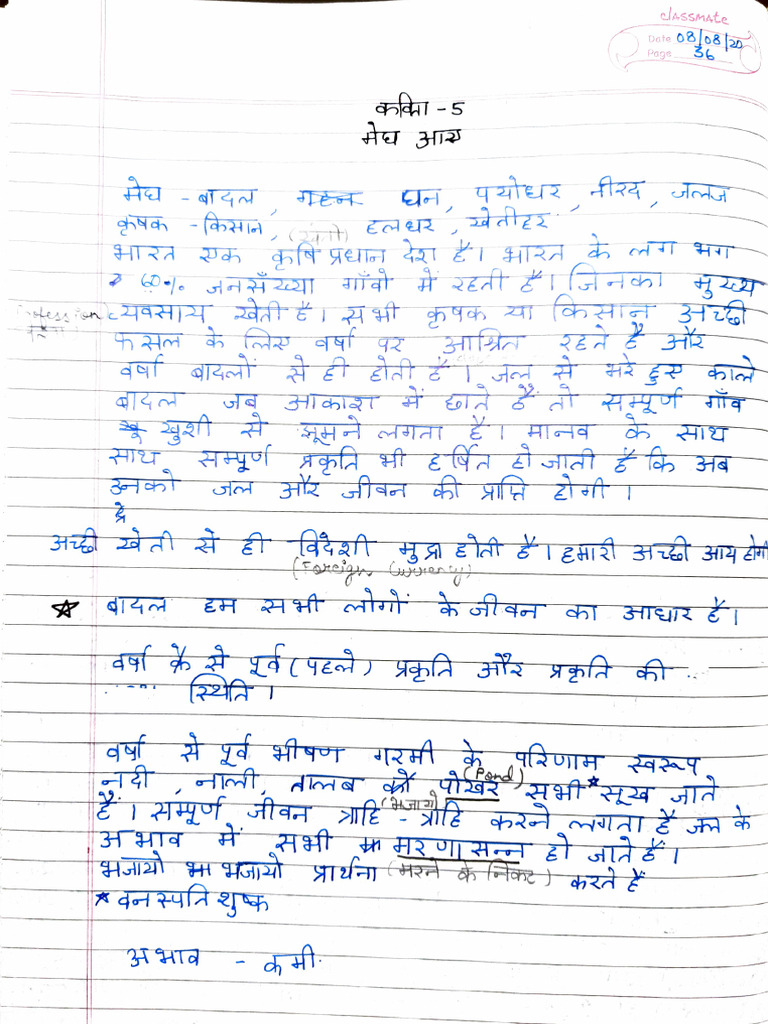 classmate
Date 08/08/20
Page 36
कविता - 5
मेघ आए
मेघ - बादल, गहन घन, पयोधर, नीरद, जलज
कृषक - किसान, हलधर, खेतीहर
भारत एक कृषि प्रधान देश है। भारत के लग भग
60% जनसँख्या गाँवो में रहती है। जिनका मुख्य
व्यवसाय खेती है। सभी कृषक या किसान अच्छी
फसल के लिए वर्षा पर आश्रित रहते है और
वर्षा बादलों से ही होती है। जल से भरे हुए काले
बादल जब आकाश में छाते हैं तो सम्पूर्ण गाँव
खू खुशी से झूमने लगता है। मानव के साथ
साथ सम्पूर्ण प्रकृति भी हर्षित हो जाती है कि अब
उनको जल और जीवन की प्राप्ति होगी।
अच्छी खेती से ही विदेशी मुद्रा होती है। हमारी अच्छी आय होगी
(Foreign Currency)
☆ बादल हम सभी लोगों के जीवन का आधार है।
वर्षा के से पूर्व (पहले) प्रकृति और प्रकृति की ...
..... स्थिति।
वर्षा से पूर्व भीषण गरमी के परिणाम स्वरूप
(Pond)
नदी, नाली, तालब को पोखर सभी * सूख जाते
हैं। सम्पूर्ण जीवन त्राहि - त्राहि करने लगता है जल के
(भजायो)
अभाव में सभी मरणासन्न हो जाते हैं।
भजायो भजायो प्रार्थना (मरने के निकट) करते हैं
* वनस्पति शुष्क
अभाव - कमी